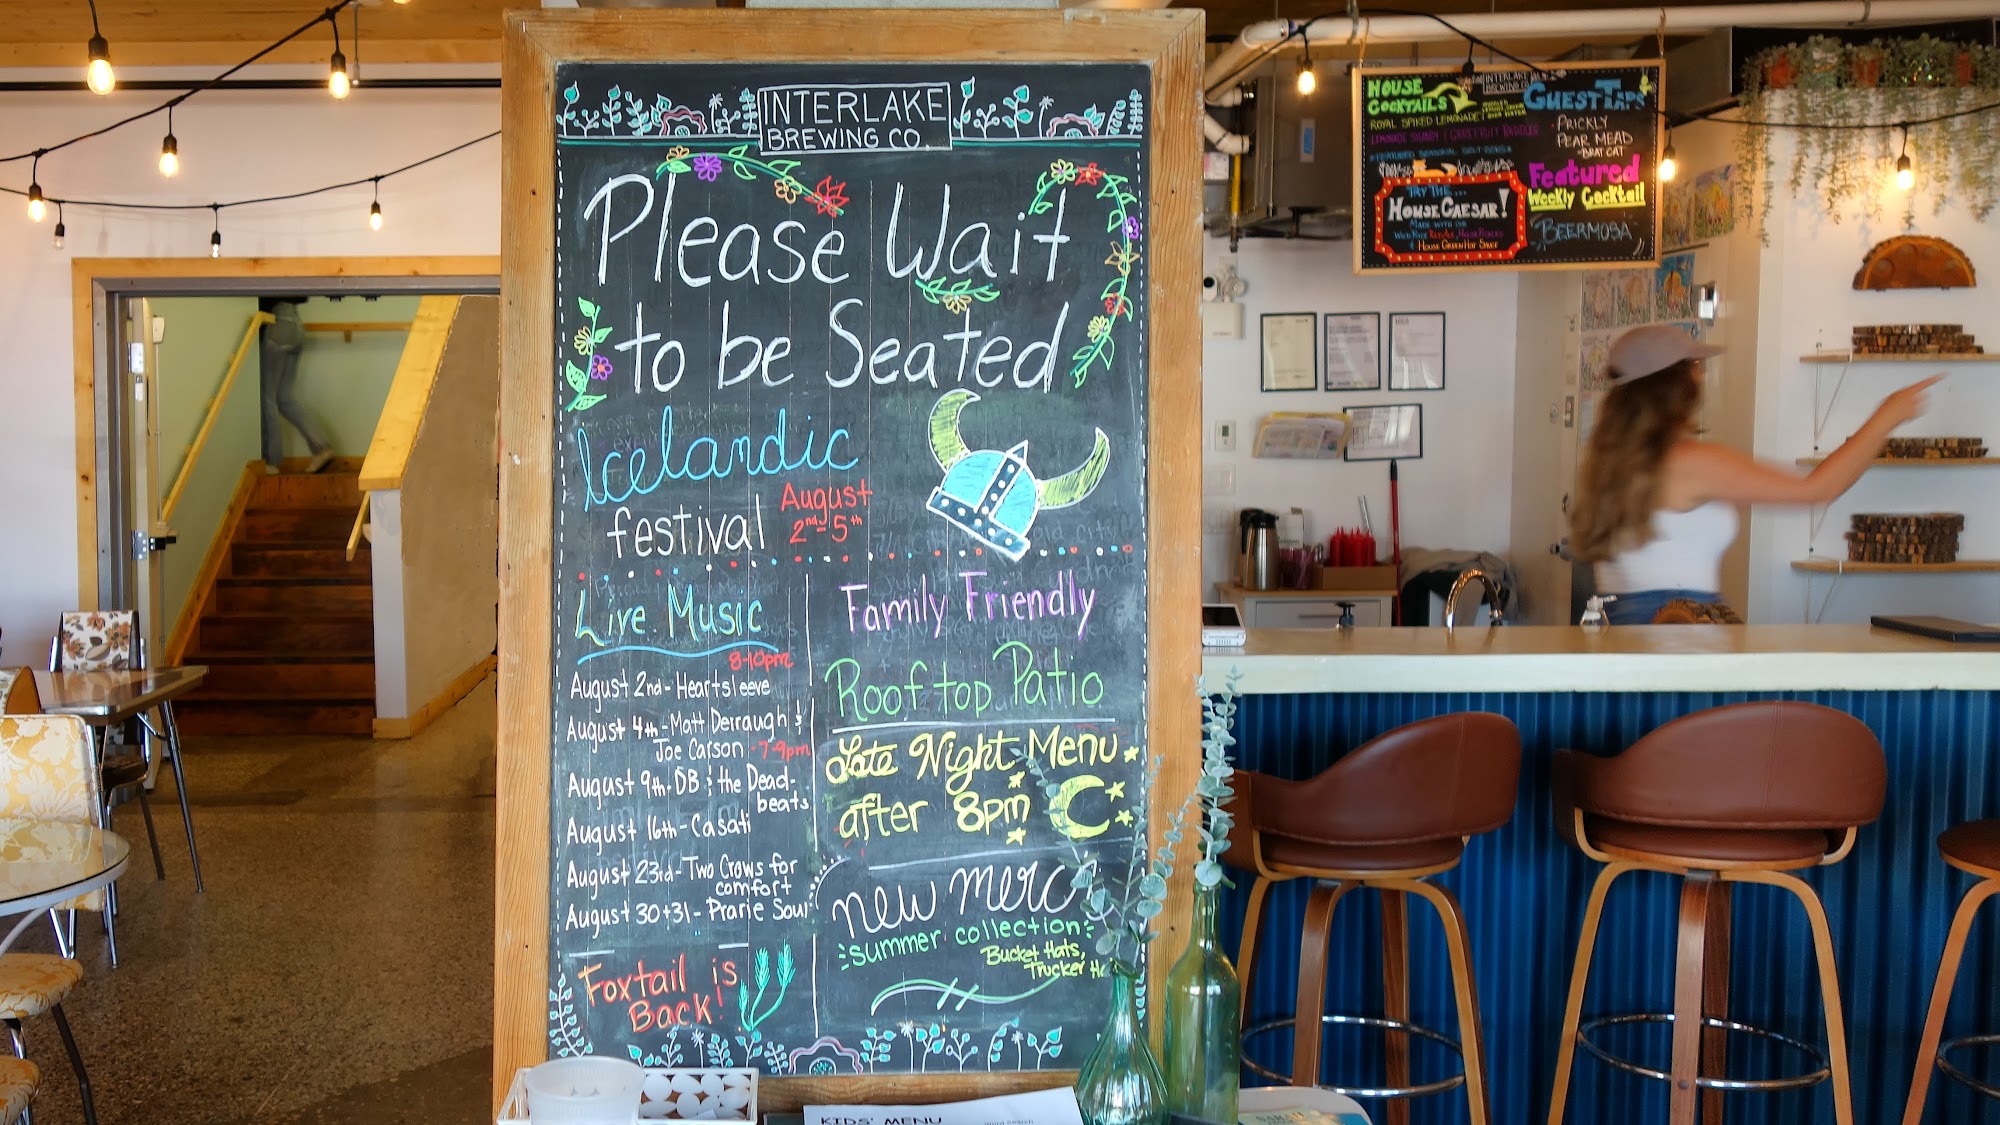 INTERLAKE
BREWING CO.
Please Wait
to be Seated
Icelandic
festival
August
2nd-5th
Live Music
8-10pm
August 2nd - Heartsleeve
August 4th - Matt Derraugh &
Joe Carson · 7-9pm
August 9th - DB & the Dead-
beats
August 16th - Casati
August 23rd - Two Crows for
comfort
August 30+31 - Prarie Soul
Foxtail is
Back!
Family Friendly
Rooftop Patio
Late Night Menu
after 8pm
new merc
summer collection
Bucket Hats,
Trucker
HOUSE
COCKTAILS
INTERLAKE
BREWING CO
GUEST TAPS
ROYAL SPIKED LEMONADE
· PRICKLY
PEAR MEAD
- BRAT CAT
TRY THE...
HOUSE CAESAR!
MADE WITH OUR
& HOUSE GREEN HOT SAUCE
Featured
Weekly Cocktail
BEERMOSA
KIDS' MENU